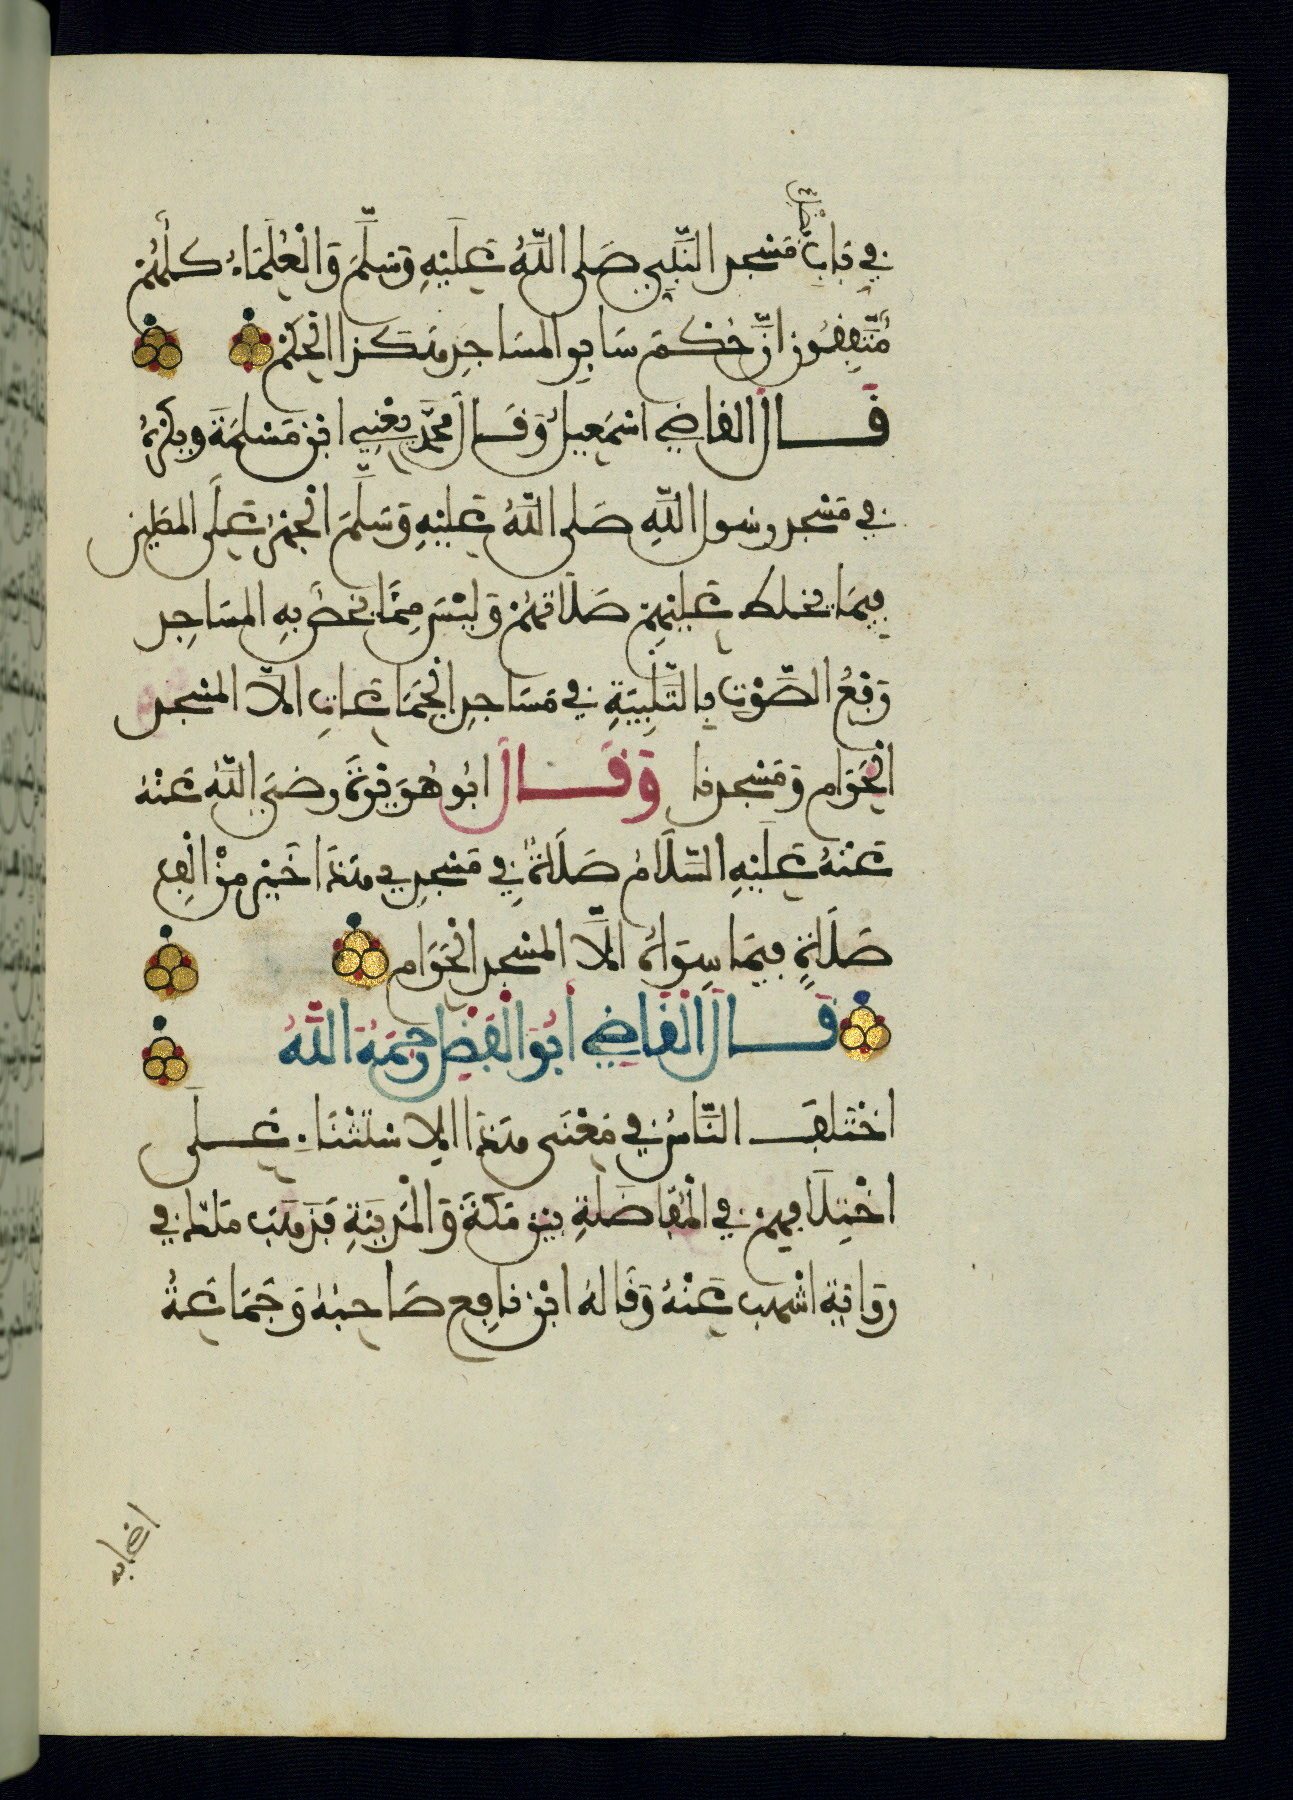 فضل
في باب مسجد النبي صَلى اللَّهُ عَلَيْهِ وَسَلَّمَ وَالْعُلَمَاءُ كلُّهُمْ
مُتَّفِقُونَ انَّ حُكْمَ سَايِرِ المسَاجِدِ هَذَا الحُكْم
قَالَ القاضِي اسْمَعِيلُ وَقَالَ مُحَمَّد يَعْنِي ابْنَ مَسْلمَةَ ويُكْرَهُ
في مَسْجد رسُول اللَّهِ صَلى اللَّهُ عَلَيْهِ وَسَلَّمَ الْجَهْرُ عَلَى المصَلِّين
فِيمَا يخلط عَلَيْهِمْ صَلَاتَهُمْ وَلَيْسَ مِمَّا يُخَصُّ بِهِ المسَاجِد
رَفْعُ الصَّوْت بِالتَّلْبِيَةِ في مَسَاجِدِ الجَمَاعَاتِ الَّا المسْجد
الْحَرَام وَمَسْجدنا وَقَالَ ابُو هُرَيْرَةَ رضيَ اللَّهُ عَنْهُ
عَنْهُ عَلَيْهِ السَّلَامُ صَلَاةٌ فِي مَسْجِدِي هَذَا خَيْر مِنْ الْفِ
صَلَاةٍ فِيمَا سِوَاهُ الَّا المسْجد الْحَرَام
قَالَ الْقَاضِي أَبُو الْفَضْلِ رَحِمَهُ اللَّهُ
اخْتَلَفَ النَّاسُ في مَعْنَى هَذَا الِاسْتثْنَاءِ عَلَى
اخْتِلَافِهِمْ في الْمُفَاضَلَةِ بَيْن مَكَّةَ وَالْمَدِينَةِ فَذَهَبَ مَالك في
رِوَايَة اشْهَب عَنْهُ وَقَالهُ ابْنُ نافِع صَاحِبُهُ وَجَمَاعَةُ
اصحابه